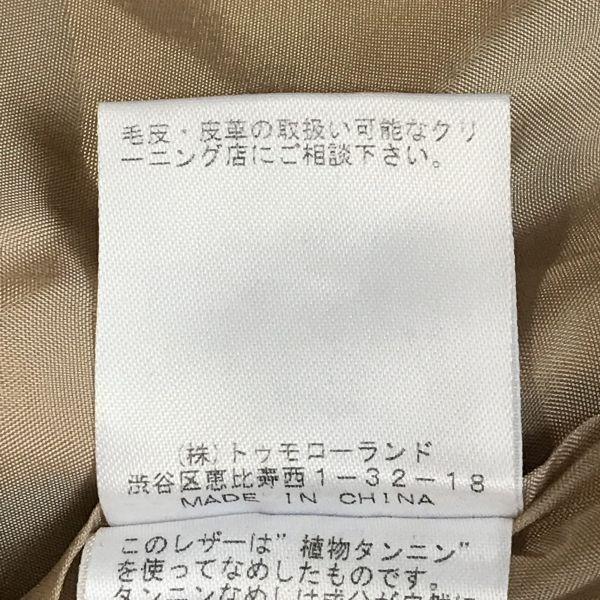 毛皮・皮革の取扱い可能なクリ
ーニング店にご相談下さい。
(株)トゥモローランド
渋谷区恵比寿西1-32-18
MADE IN CHINA
このレザーは"植物タンニン"
を使ってなめしたものです。
タンニンなめしは成分が自然に